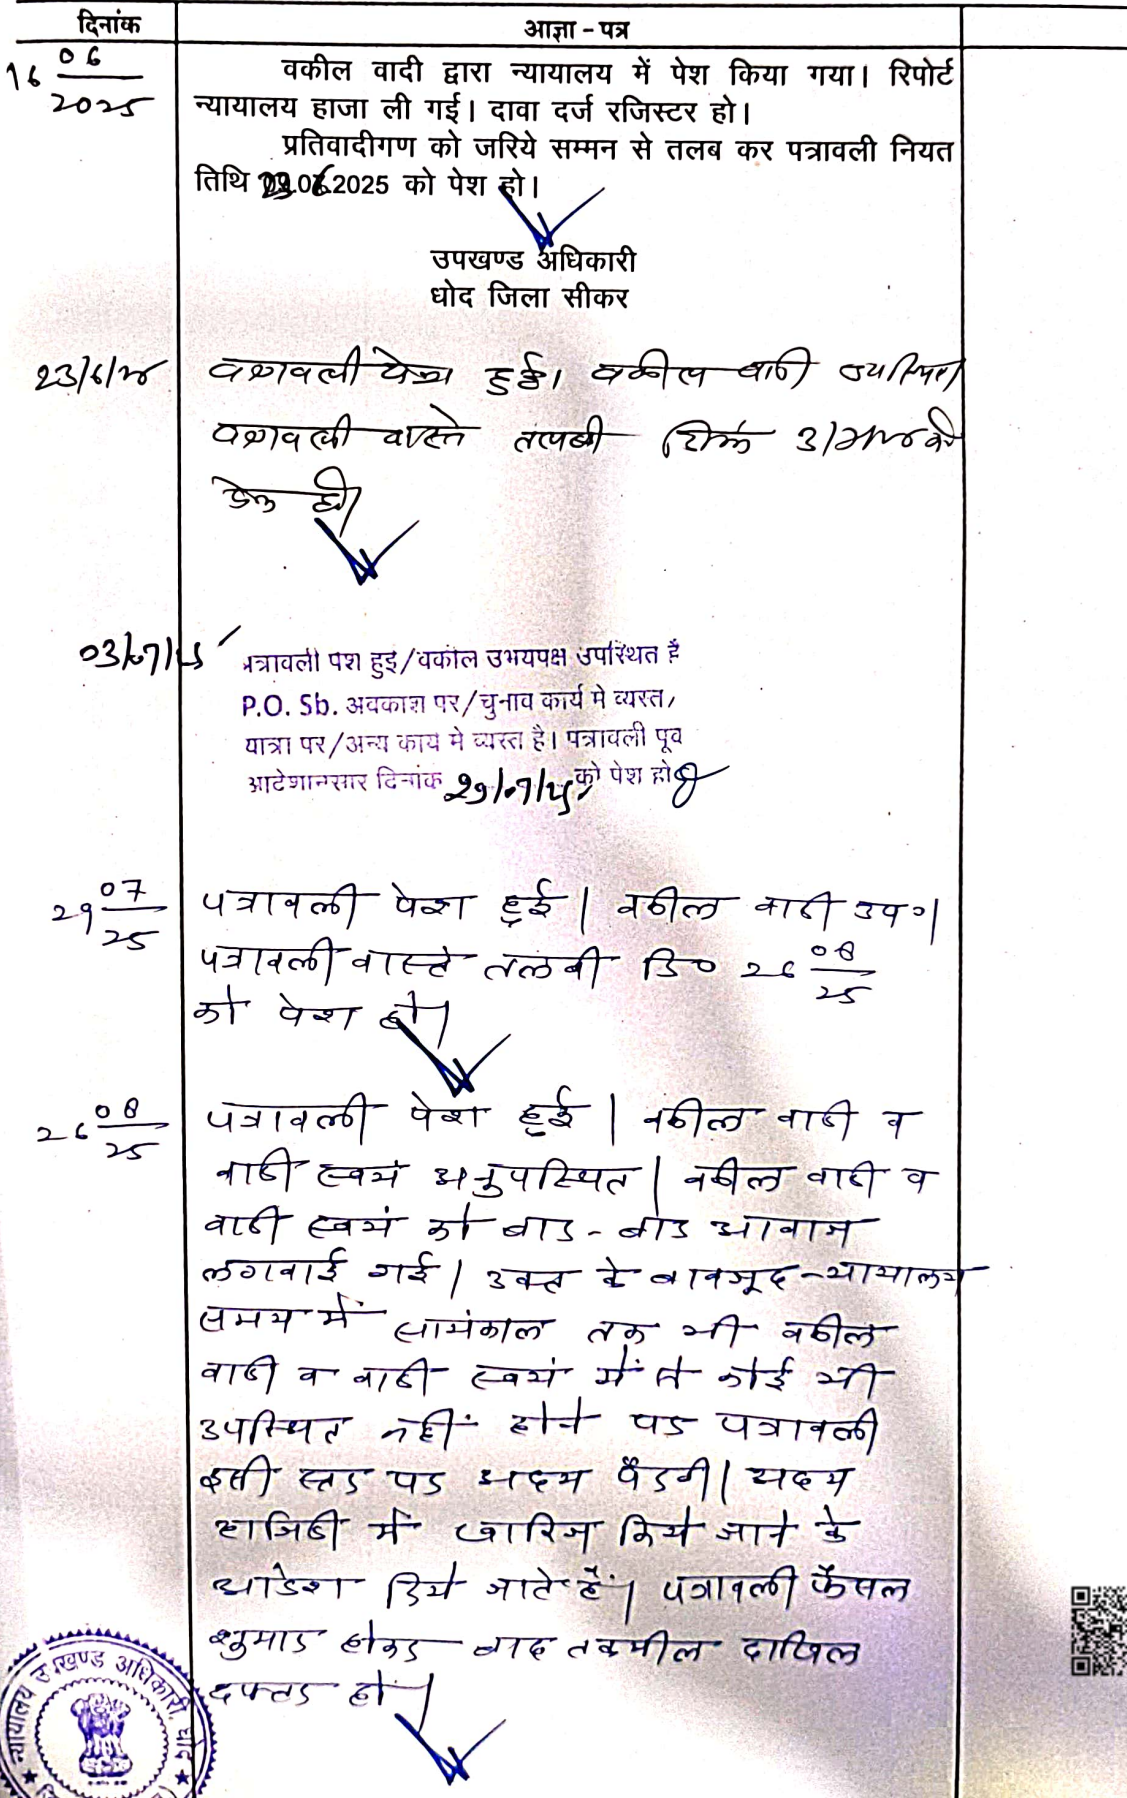 दिनांक
आज्ञा - पत्र
16 06/2025
वकील वादी द्वारा न्यायालय में पेश किया गया। रिपोर्ट
न्यायालय हाजा ली गई। दावा दर्ज रजिस्टर हो।
प्रतिवादीगण को जरिये सम्मन से तलब कर पत्रावली नियत
तिथि 23.06.2025 को पेश हो।
उपखण्ड अधिकारी
धोद जिला सीकर
23/6/25
पत्रावली पेश हुई। वकील वादी उपस्थित।
पत्रावली वास्ते तलबी दिनांक 3/7/25 को
पेश हो।
03/07/25
पत्रावली पेश हुई/वकील उभयपक्ष उपस्थित है
P.O. Sb. अवकाश पर/चुनाव कार्य मे व्यस्त,
यात्रा पर/अन्य कार्य मे व्यस्त है। पत्रावली पूर्व
आदेशानुसार दिनांक 29/07/25 को पेश हो
29 07/25
पत्रावली पेश हुई। वकील वादी उप०।
पत्रावली वास्ते तलबी दि० 26 08/25
को पेश हो।
26 08/25
पत्रावली पेश हुई। वकील वादी व
वादी स्वयं अनुपस्थित। वकील वादी व
वादी स्वयं को बार-बार आवाज
लगवाई गई। उक्त के बावजूद न्यायालय
समय में सायंकाल तक भी वकील
वादी व वादी स्वयं में से कोई भी
उपस्थित नहीं होने पर पत्रावली
इसी स्तर पर अदम पैरवी। अदम
हाजिरी में खारिज किये जाने के
आदेश दिये जाते हैं। पत्रावली फैसल
शुमार होकर बाद तकमील दाखिल
दफ्तर हो।
न्यायालय उपखण्ड अधिकारी, धोद